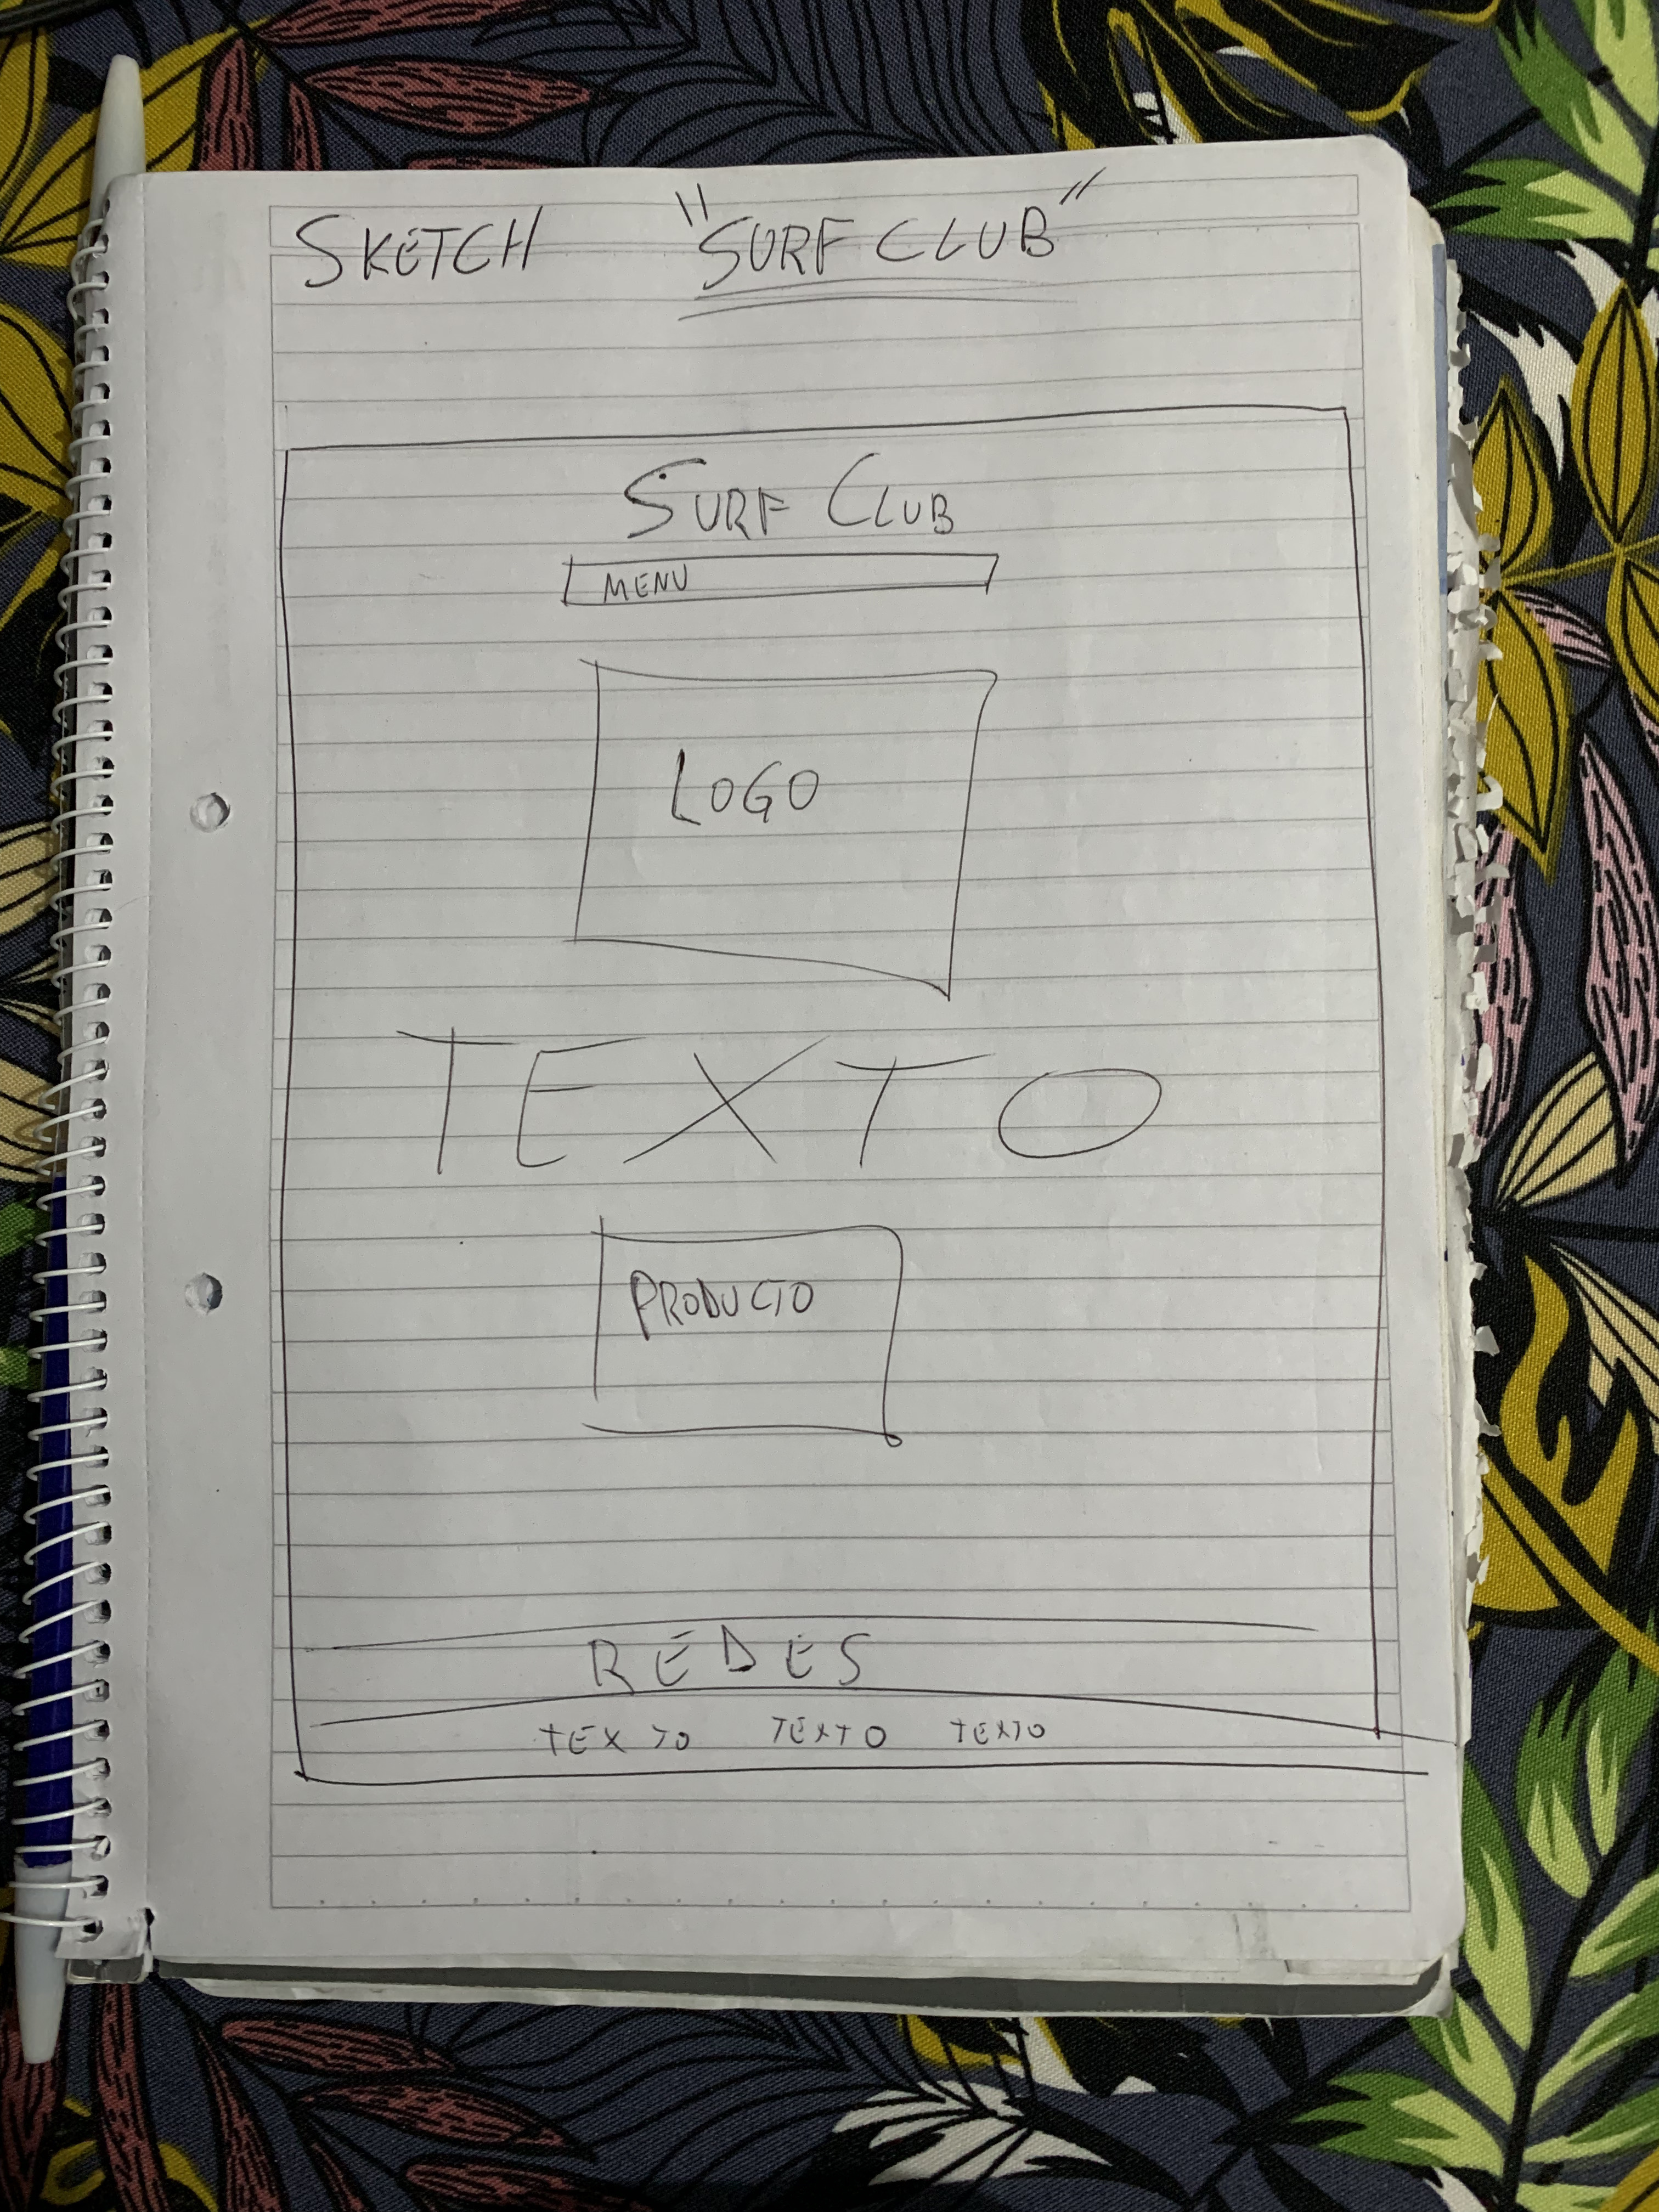 SKETCH "SURF CLUB"
SURF CLUB
MENU
LOGO
TEXTO
PRODUCTO
REDES
TEXTO TEXTO TEXTO